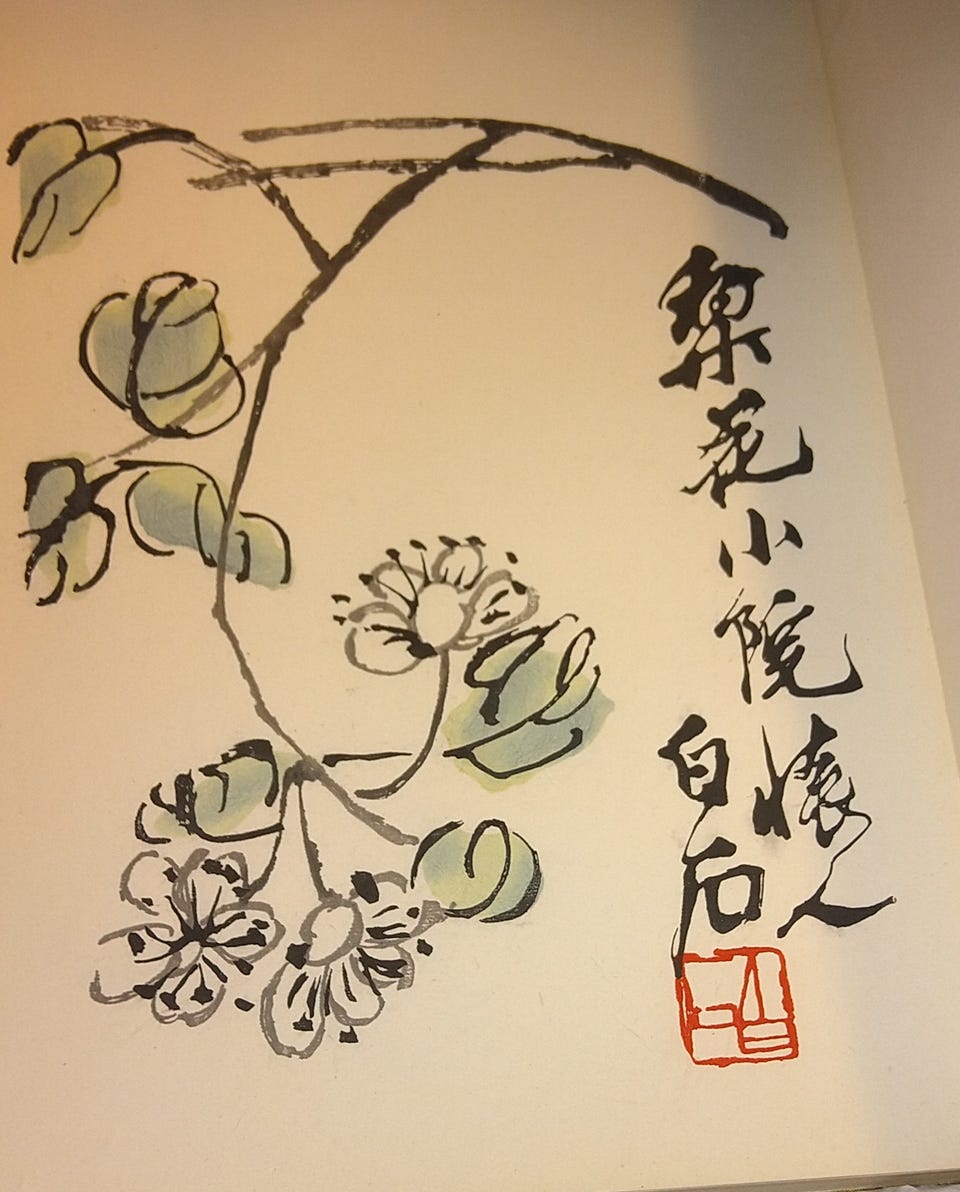 梨花小院懷人
白石